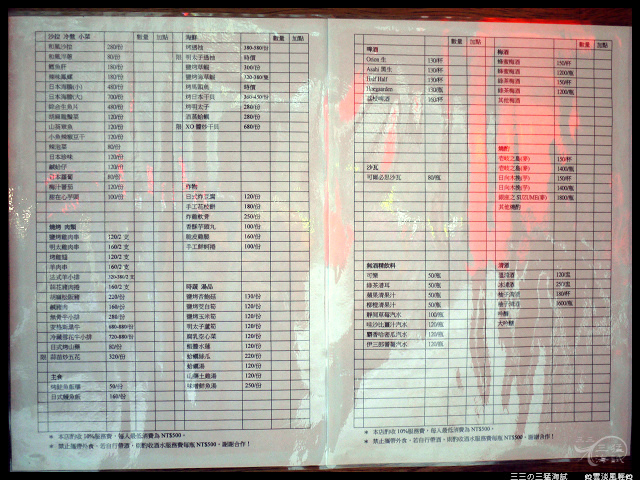 沙拉 冷盤 小菜 數量 加點
和風沙拉 280/份
和風洋蔥 80/份
鱈魚肝 180/份
辣味風螺 180/份
日本海鮮(小) 480/份
日本海鮮(大) 700/份
綜合生魚片 480/份
胡麻龍鬚菜 120/份
山蒜章魚 120/份
小魚辣椒豆干 120/份
辣泡菜 80/份
日本珍味 120/份
鹹蛤仔 120/份
日本蘿蔔 80/份
梅汁蕃茄 120/份
甜在心芋圓 100/份
燒烤 肉類
鹽烤雞肉串 120/2 支
明太雞肉串 160/2 支
烤雞翅 120/2 支
羊肉串 160/2 支
法式羊小排 320-380/2 支
蒜花豬肉捲 160/2 支
胡麻松阪豬 220/份
鹹豬肉 160/份
無骨牛小排 280/份
安格斯濕牛 680-880/份
冷藏雪花牛小排 720-880/份
日式烤山藥 80/份
限 蒜苗炒五花 320/份
主食
烤鮭魚飯糰 50/份
日式鰻魚飯 160/份
海鮮 數量 加點
烤透抽 380-580/份
限 明太子透抽 時價
鹽烤草蝦 300/份
鹽烤海草蝦 320-380/隻
烤馬頭魚 時價
烤日本干貝 380-450/份
烤明太子 280/份
酒蒸蛤蠣 280/份
限 XO 醬炒干貝 680/份
炸物
日式炸豆腐 120/份
手工花枝餅 180/份
炸雞軟骨 250/份
香酥芋頭丸 100/份
脆皮雞腿 160/份
手工鮮蚵捲 100/份
時蔬 湯品
鹽烤杏鮑菇 130/份
鹽烤茭白筍 120/份
鹽烤玉米筍 120/份
明太子蘆筍 120/份
腐乳空心菜 120/份
櫛醬水蓮 120/份
蛤蠣絲瓜 220/份
蛤蠣湯 120/份
山藥土雞湯 120/份
味噌鮮魚湯 250/份
＊ 本店酌收 10%服務費，每人最低消費為 NT$500。
＊ 禁止攜帶外食。若自行帶酒，則酌收酒水服務費每瓶 NT$500。謝謝合作！
啤酒 數量 加點
Orion 生 130/杯
Asahi 黑生 130/杯
Half Half 130/杯
Hoegaarden 130/瓶
荔枝啤酒 160/杯
沙瓦
可爾必思沙瓦 80/瓶
無酒精飲料
可樂 50/瓶
綠茶烏耳 50/瓶
蘋果清果汁 50/瓶
柳橙清果汁 50/瓶
靜岡草莓汽水 100/瓶
哇沙比薑汁汽水 120/瓶
麝香哈密瓜汽水 120/瓶
伊三郎蕃龍汽水 120/瓶
梅酒 數量 加點
蜂蜜梅酒 150/杯
蜂蜜梅酒 1200/瓶
綠茶梅酒 150/杯
綠茶梅酒 1200/瓶
其他梅酒
燒酌
壱岐之島(麥) 150/杯
壱岐之島(麥) 1400/瓶
日向木挽(芋) 150/杯
日向木挽(芋) 1400/瓶
銀座之雀IZUMI(麥) 1800/瓶
其他燒酌
清酒
溫清酒 120/壺
冰清酒 250/壺
柚子清酒 180/杯
柚子清酒 1600/瓶
吟釀
大吟釀
＊ 本店酌收 10%服務費，每人最低消費為 NT$500。
＊ 禁止攜帶外食。若自行帶酒，則酌收酒水服務費每瓶 NT$500。謝謝合作！
三三の三猛海賊 @雲淡風輕@